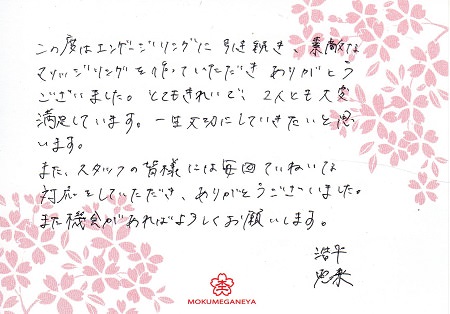 この度はエンゲージリングに引き続き、素敵な
マリッジリングを作っていただきありがとう
ございました。とてもきれいで、2人とも大変
満足しています。一生大切にしていきたいと思
います。
また、スタッフの皆様には毎回ていねいな
対応をしていただき、ありがとうございました。
また機会があればよろしくお願いします。
浩平
MOKUMEGANEYA